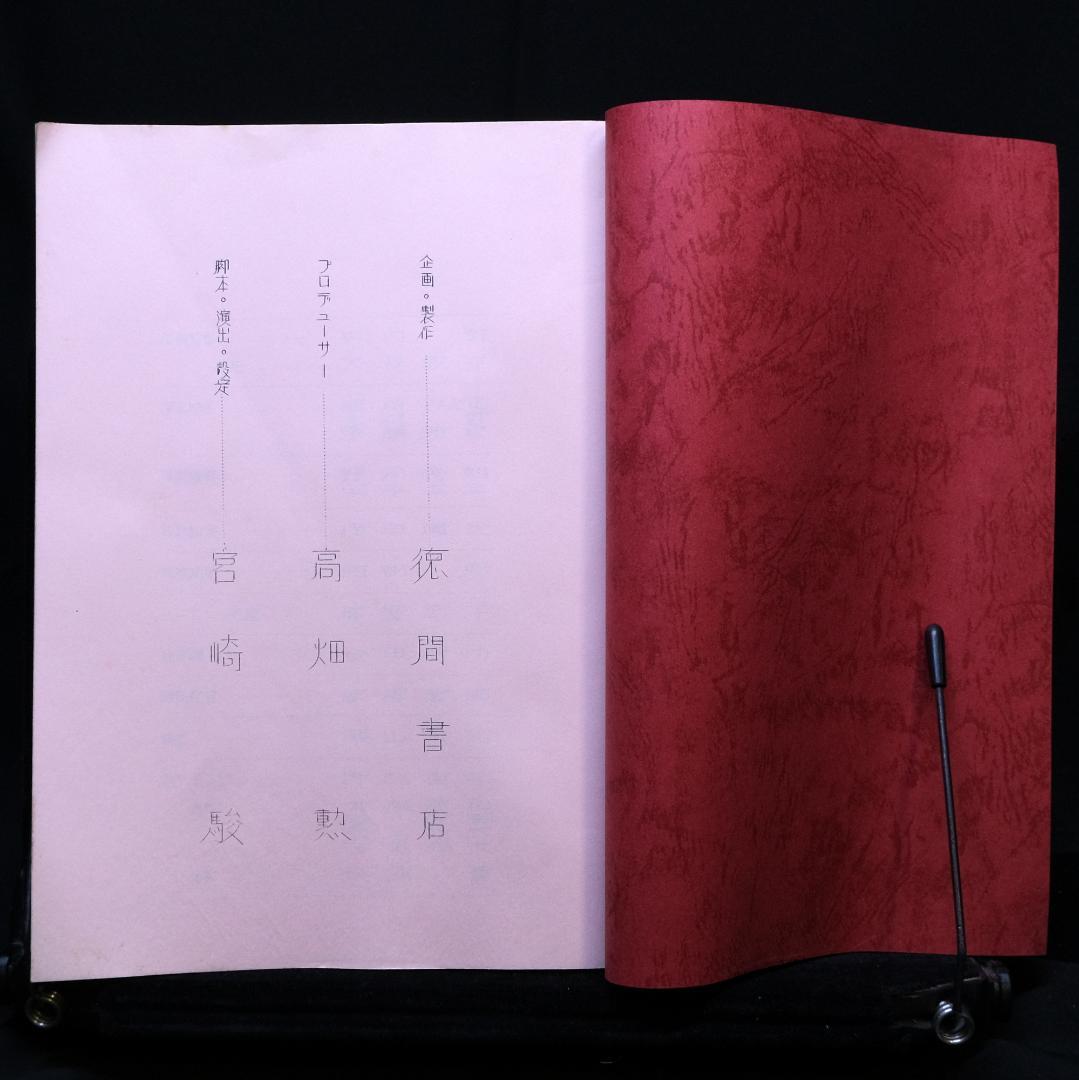 企画。製作……………徳間書店
プロデューサー……………高畑勲
脚本。演出。設定……………宮崎駿